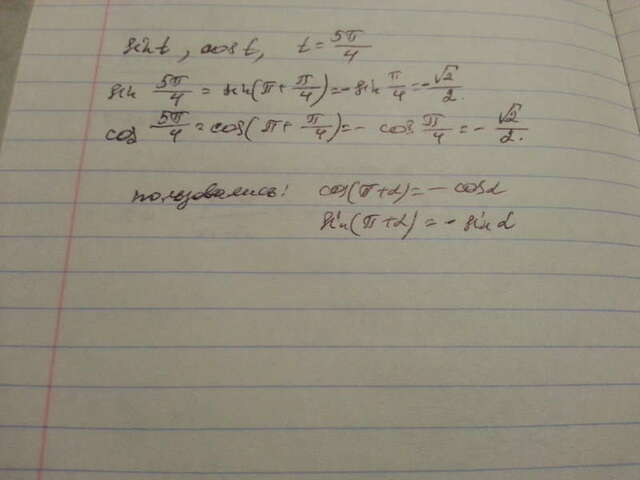 sin t, cos t, t = 5π/4
sin 5π/4 = sin(π + π/4) = - sin π/4 = - √2/2.
cos 5π/4 = cos(π + π/4) = - cos π/4 = - √2/2.
пользовались: cos(π+α) = - cos α
sin(π+α) = - sin α